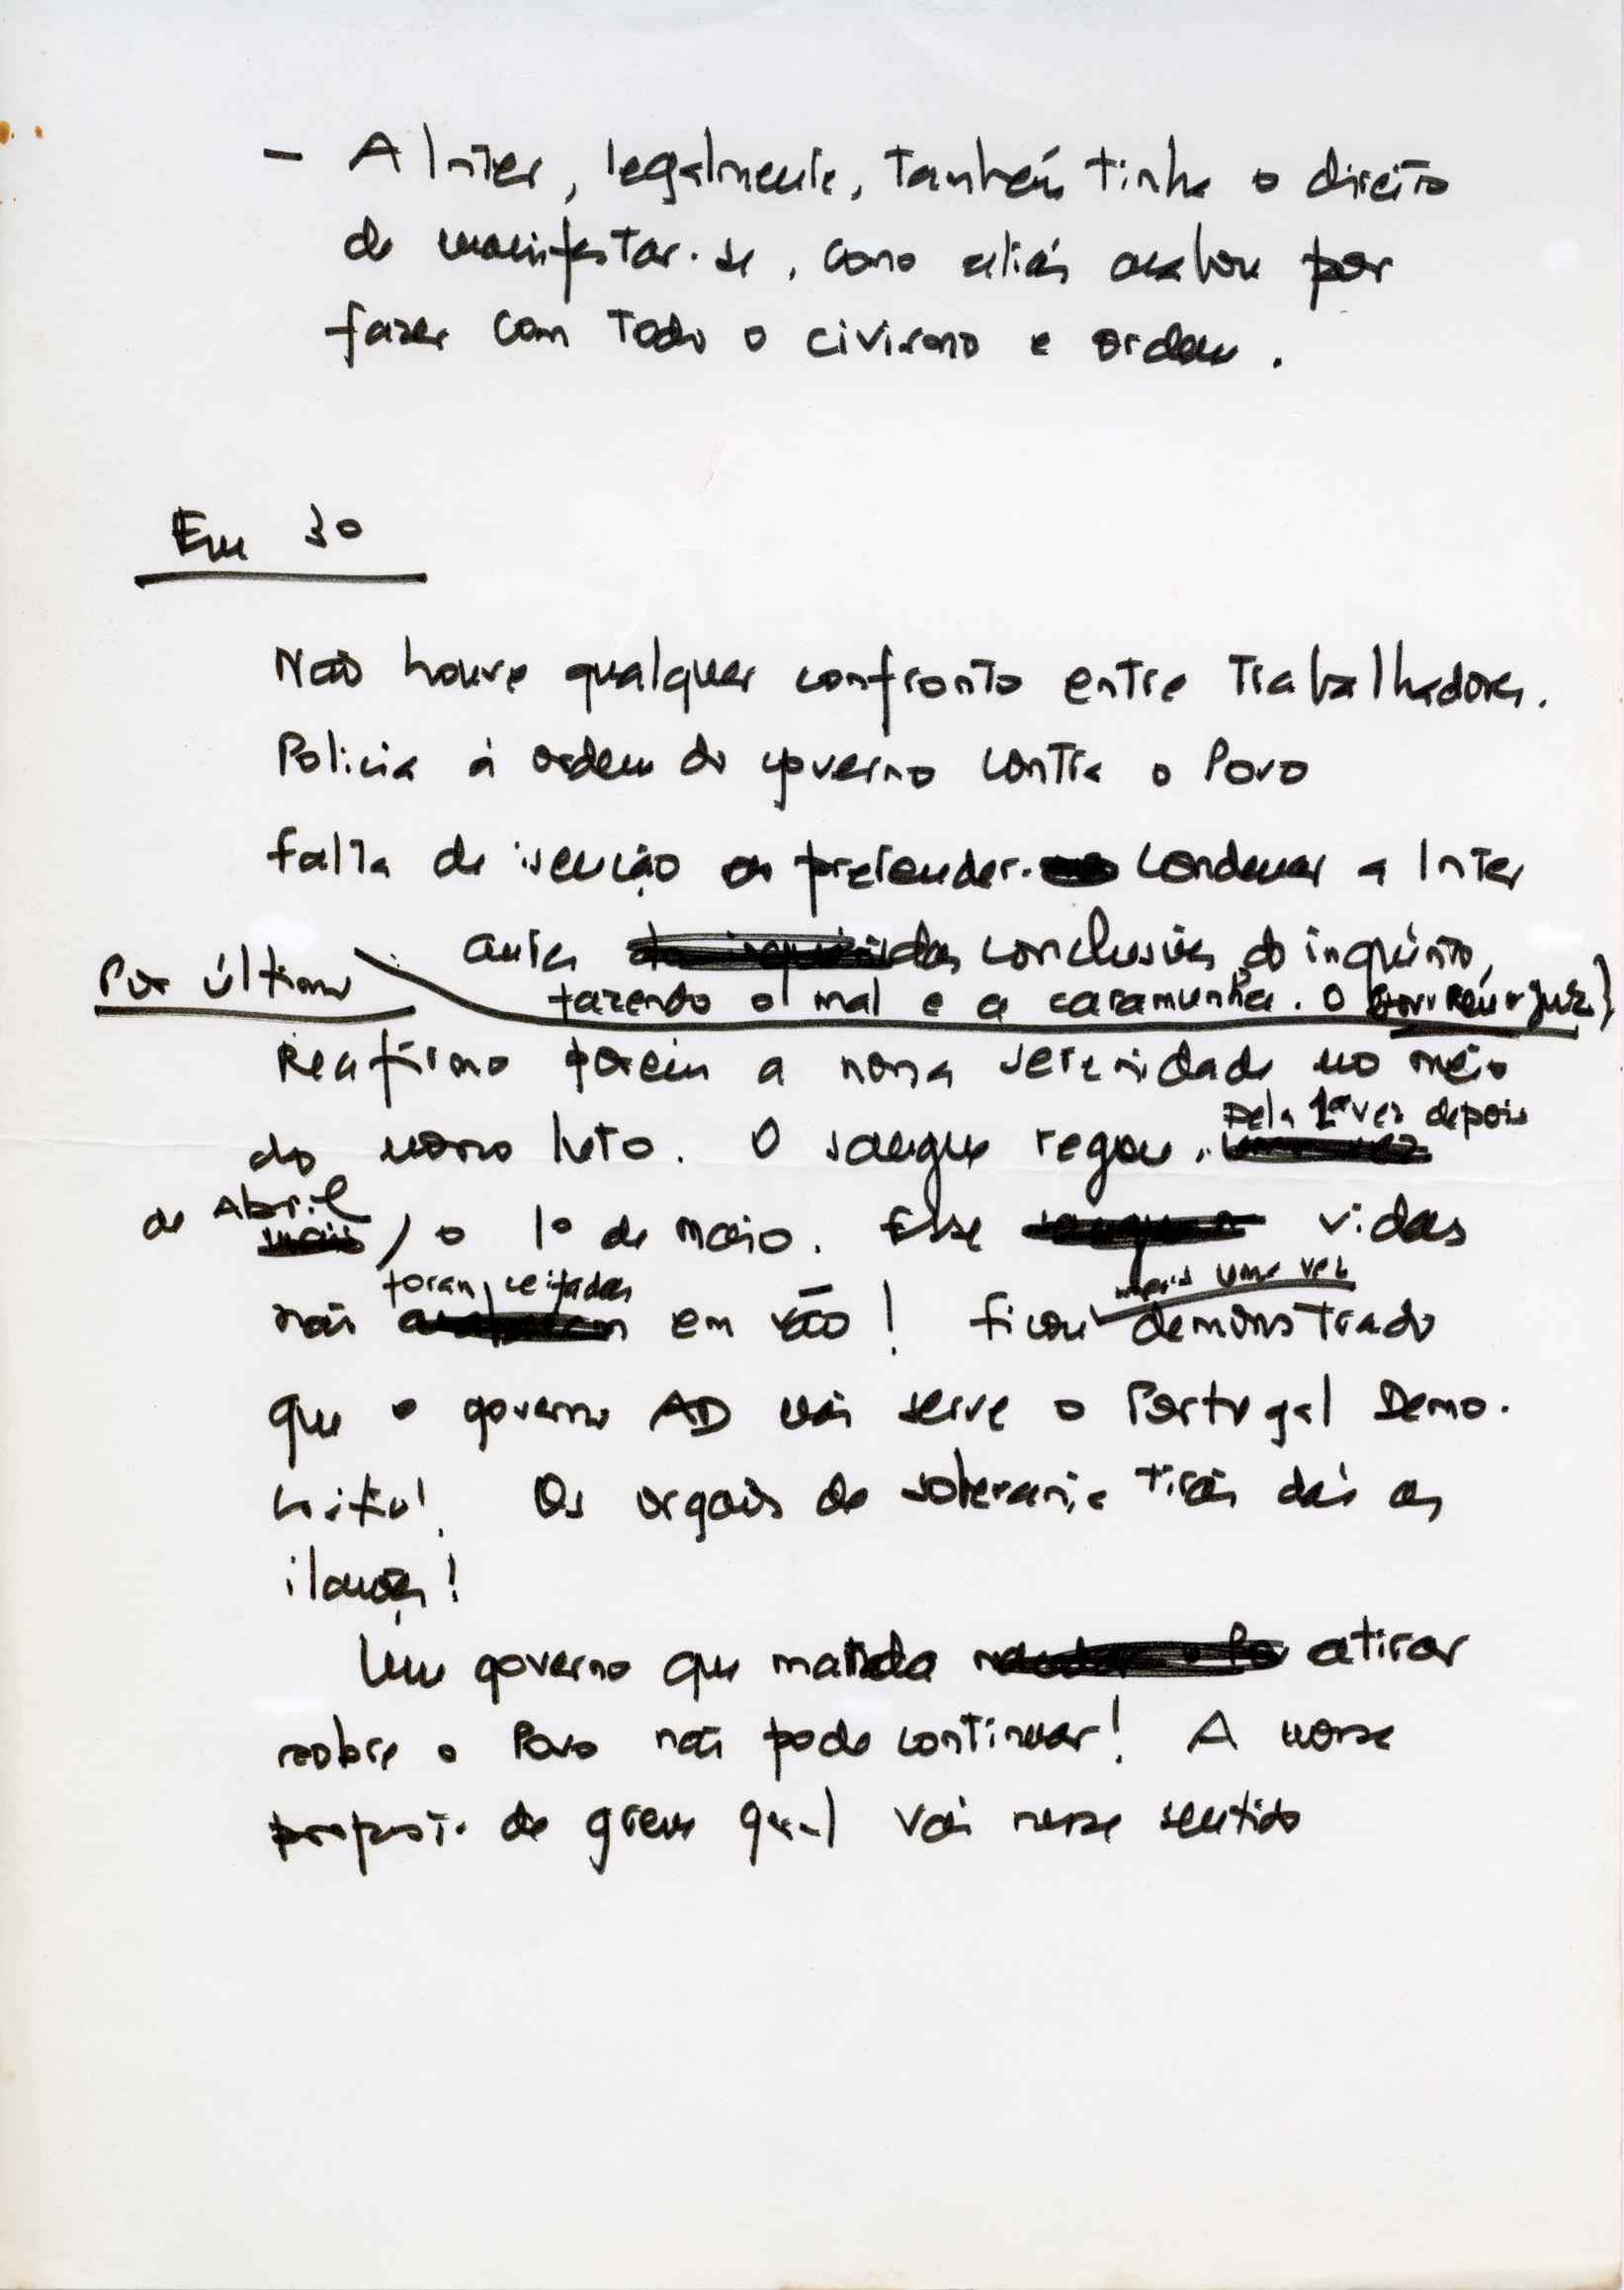 - A Inter, legalmente, também tinha o direito
de manifestar-se, como aliás acabou por
fazer com todo o civismo e ordem.
Em 3º
Não houve qualquer confronto entre trabalhadores.
Policia à ordem do governo contra o Povo
falta de isenção ao pretender-se condenar a Inter
antes das conclusões do inquérito,
fazendo o mal e a caramunha. O Gov. Réu e Juiz}
Por último
Reafirmo porém a nossa serenidade no meio
do nosso luto. O sangue regou, pela 1ª vez depois
de Abril, o 1º de Maio. Esse vidas
não foram ceifadas em vão! Ficou mais uma vez demonstrado
que o governo AD não serve o Portugal Demo-
crático! Os orgãos de soberania tirão daí as
ilações!
Um governo que manda atirar
sobre o Povo não pode continuar! A nossa
proposta de greve geral vai nesse sentido